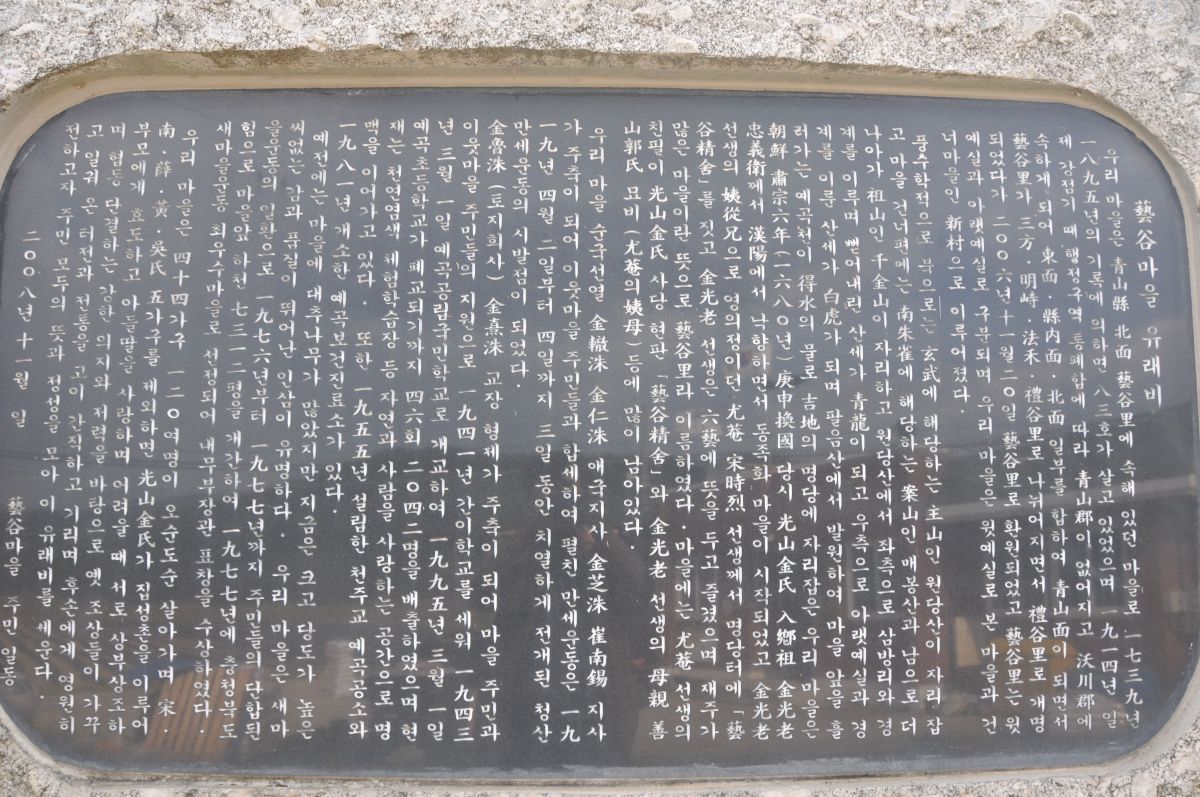 藝谷마을 유래비
우리 마을은 青山縣 北面 藝谷里에 속해 있던 마을로 一七三九년
一八九五년의 기록에 의하면 八三호가 살고 있었으며 一九一四년 일
제 강점기 때 행정구역 통폐합에 따라 青山郡이 없어지고 沃川郡에
속하게 되어 東面·縣內面·北面 일부를 합하여 青山面이 되면서
藝谷里가 三方·明峙·法禾·禮谷里로 나뉘어지면서 禮谷里로 개명
되었다가 二○○六년 十一월 二○일 藝谷里로 환원되었고 藝谷里는 윗
예실과 아랫예실로 구분되며 우리 마을은 윗예실로 본 마을과 건
너마을인 新村으로 이루어졌다.
풍수학적으로 북으로는 玄武에 해당하는 主山인 원당산이 자리 잡
고 마을 건너편에는 南朱雀에 해당하는 案山인 매봉산과 남으로 더
나아가 祖山인 千金山이 자리하고 원당산에서 좌측으로 삼방리와 경
계를 이루며 뻗어내린 산세가 青龍이 되고 우측으로 아랫예실과 경
계를 이룬 산세가 白虎가 되며 팔음산에서 발원하여 마을 앞을 흘
러가는 예곡천이 得水의 물로 吉地의 명당에 자리잡은 우리 마을은
朝鮮 肅宗六年(一六八○년) 庚申換國 당시 光山金氏 入鄕祖 金光老
忠義衛께서 漢陽에서 낙향하면서 동족화 마을이 시작되었고 金光老
선생의 姨從兄으로 영의정이던 尤菴 宋時烈 선생께서 명당터에「藝
谷精舍」를 짓고 金光老 선생은 六藝에 뜻을 두고 즐겼으며 재주가
많은 마을이란 뜻으로 藝谷里라 이름하였다. 마을에는 尤菴 선생의
친필이 光山金氏 사당 현판「藝谷精舍」와 金光老 선생의 母親 善
山郭氏 묘비(尤菴의 姨母)등에 많이 남아있다.
우리 마을 순국선열 金轍洙 金仁洙 애국지사 金芝洙 崔南錫 지사
가 주축이 되어 이웃마을 주민들과 합세하여 펼친 만세운동은 一九
一九년 四월 二일부터 四일까지 三일 동안 치열하게 전개된 청산
만세운동의 시발점이 되었다.
金魯洙(토지희사) 金熹洙 교장 형제가 주축이 되어 마을 주민과
이웃마을 주민들의 지원으로 一九四一년 간이학교를 세워 一九四三
년 三월 一일 예곡공립국민학교로 개교하여 一九九五년 三월 一일
예곡초등학교가 폐교되기까지 四六회 二○四二명을 배출하였으며 현
재는 천연염색 체험학습장 등 자연과 사람을 사랑하는 공간으로 명
맥을 이어가고 있다. 또한 一九五五년 설립한 천주교 예곡공소와
一九八一년 개소한 예곡보건진료소가 있다.
예전에는 마을에 대추나무가 많았지만 지금은 크고 당도가 높은
씨없는 감과 품질이 뛰어난 인삼이 유명하다. 우리 마을은 새마
을운동의 일환으로 一九七六년부터 一九七七년까지 주민들의 단합된
힘으로 마을앞 하천 七三一二평을 개간하여 一九七七년에 충청북도
새마을운동 최우수마을로 선정되어 내무부장관 표창을 수상하였다.
우리 마을은 四十四가구 一二○여명이 오순도순 살아가며 宋·
南·薛·黃·吳氏 五가구를 제외하면 光山金氏가 집성촌을 이루어
부모에게 효도하고 아들딸을 사랑하며 어려울 때 서로 상부상조하
며 협동 단결하는 강한 의지와 저력을 바탕으로 옛 조상들이 가꾸
고 일궈 온 터전과 전통을 고이 간직하고 기리며 후손에게 영원히
전하고자 주민 모두의 뜻과 정성을 모아 이 유래비를 세운다
二○○八년 十一월 일
藝谷마을 주민 일동